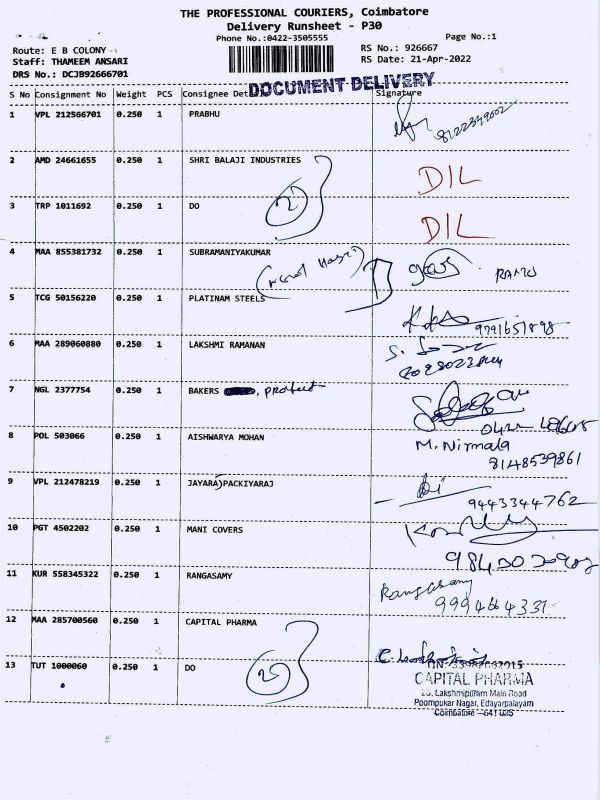 THE PROFESSIONAL COURIERS, Coimbatore
Delivery Runsheet - P30
Phone No.:0422-3505555
Page No.:1
Route: E B COLONY
RS No.: 926667
Staff: THAMEEM ANSARI
RS Date: 21-Apr-2022
DRS No.: DCJB92666701
DOCUMENT DELIVERY
S No Consignment No Weight PCS Consignee Signature
1 VPL 212566701 0.250 1 PRABHU
8122349002
2 AMD 24661655 0.250 1 SHRI BALAJI INDUSTRIES DIL
3 TRP 1011692 0.250 1 DO DIL
4 MAA 855381732 0.250 1 SUBRAMANIYAKUMAR
5 TCG 50156220 0.250 1 PLATINAM STEELS
9791651898
6 MAA 289060880 0.250 1 LAKSHMI RAMANAN
7 NGL 2377754 0.250 1 BAKERS
8 POL 503066 0.250 1 AISHWARYA MOHAN M. Nirmala
8148539861
9 VPL 212478219 0.250 1 JAYARAJPACKIYARAJ
9443344762
10 PGT 4502202 0.250 1 MANI COVERS
11 KUR 558345322 0.250 1 RANGASAMY Rangasamy
9994664331
12 MAA 285700560 0.250 1 CAPITAL PHARMA
13 TUT 1000060 0.250 1 DO
CAPITAL PHARMA
Lakshmipuram Main Road
Poompukar Nagar, Edayarpalayam
Coimbatore - 641 025